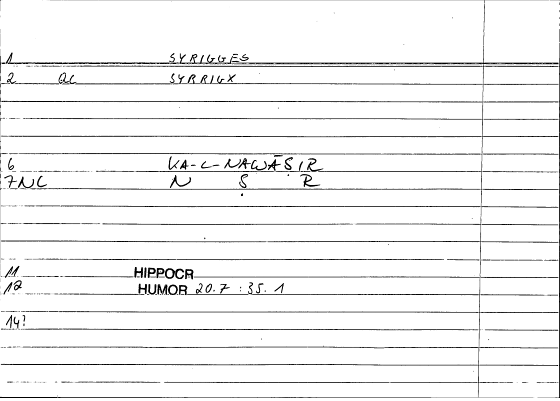 1 SYRIGGES
2 QC SYRRIGX
6 WA-L-NAWĀṢIR
7NC N Ṣ R
11 HIPPOCR
12 HUMOR 20.7 : 35. 1
14?